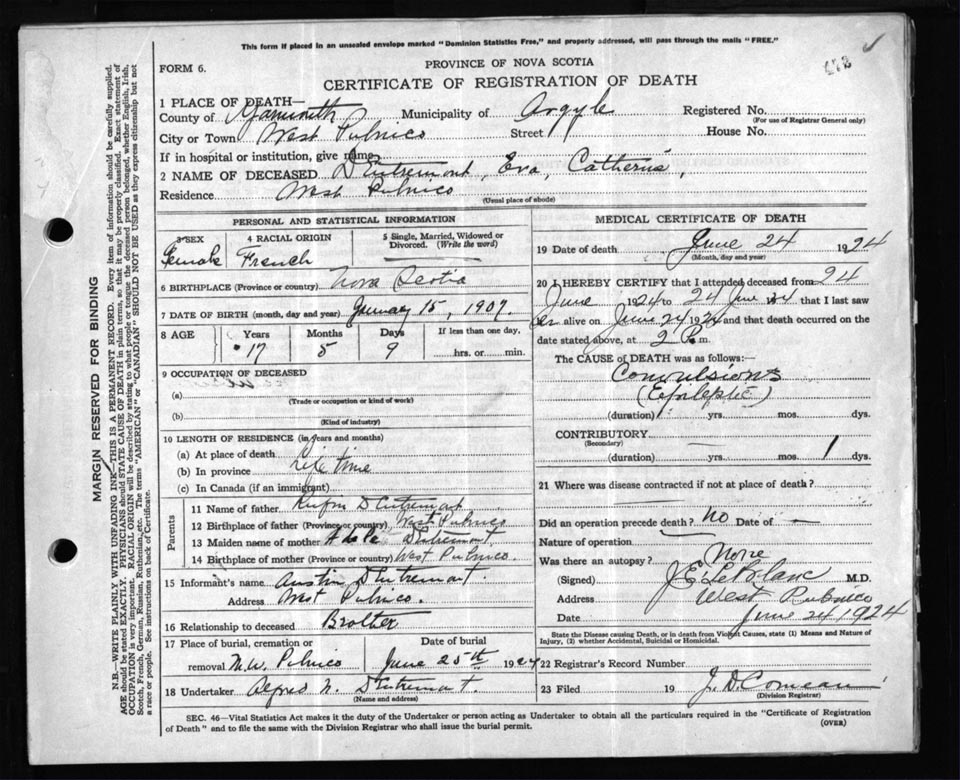 This form if placed in an unsealed envelope marked "Dominion Statistics Free," and properly addressed, will pass through the mails "FREE."
FORM 6.
PROVINCE OF NOVA SCOTIA
CERTIFICATE OF REGISTRATION OF DEATH
1 PLACE OF DEATH—
County of Yarmouth Municipality of Argyle Registered No.
(For use of Registrar General only)
City or Town West Pubnico Street House No.
If in hospital or institution, give name
2 NAME OF DECEASED D'Entremont, Eva, Catherine,
Residence West Pubnico
(Usual place of abode)
PERSONAL AND STATISTICAL INFORMATION
3 SEX 4 RACIAL ORIGIN 5 Single, Married, Widowed or Divorced. (Write the word)
Female French
6 BIRTHPLACE (Province or country) Nova Scotia
7 DATE OF BIRTH (month, day and year) January 15, 1907.
8 AGE Years Months Days If less than one day.
17 5 9 hrs. or min.
9 OCCUPATION OF DECEASED
(a)
(Trade or occupation or kind of work)
(b)
(Kind of industry)
10 LENGTH OF RESIDENCE (in years and months)
(a) At place of death
(b) In province life time
(c) In Canada (if an immigrant)
Parents
11 Name of father D'Entremont
12 Birthplace of father (Province or country) West Pubnico
13 Maiden name of mother Adele D'Entremont
14 Birthplace of mother (Province or country) West Pubnico
15 Informant's name Austin D'Entremont.
Address West Pubnico.
16 Relationship to deceased Brother
17 Place of burial, cremation or Date of burial
removal M.W. Pubnico June 25th 1924
18 Undertaker Alfred N. D'Entremont.
(Name and address)
MEDICAL CERTIFICATE OF DEATH
19 Date of death June 24 1924
(Month, day and year)
20 I HEREBY CERTIFY that I attended deceased from 24
June 1924 to 24 June 1924 that I last saw
her alive on June 24 1924 and that death occurred on the
date stated above, at 2 P. m.
The CAUSE OF DEATH was as follows:—
Convulsions
(Epileptic)
(duration) yrs. mos. dys.
CONTRIBUTORY
(Secondary)
(duration) yrs. mos. 1 dys.
21 Where was disease contracted if not at place of death?
Did an operation precede death? No Date of —
Nature of operation
Was there an autopsy? None
(Signed) J E LeBlanc M.D.
Address West Pubnico
Date June 24, 1924
State the Disease causing Death, or in death from Violent Causes, state (1) Means and Nature of
Injury, (2) whether Accidental, Suicidal or Homicidal.
22 Registrar's Record Number
23 Filed 19 J. D. Comeau
(Division Registrar)
SEC. 46—Vital Statistics Act makes it the duty of the Undertaker or person acting as Undertaker to obtain all the particulars required in the "Certificate of Registration
of Death" and to file the same with the Division Registrar who shall issue the burial permit.
(OVER)
MARGIN RESERVED FOR BINDING
N.B.—WRITE PLAINLY WITH UNFADING INK—THIS IS A PERMANENT RECORD. Every item of information should be carefully supplied.
AGE should be stated EXACTLY. PHYSICIANS should STATE CAUSE OF DEATH in plain terms, so that it may be properly classified. Exact statement of
OCCUPATION is very important. RACIAL ORIGIN will be described by stating to what people or tongue the deceased person belonged, whether English, Irish,
Scotch, French, German, Russian, Ruthenian, etc. The terms "AMERICAN" or "CANADIAN" SHOULD NOT BE USED as they express citizenship but not
a race or people. See instructions on back of Certificate.